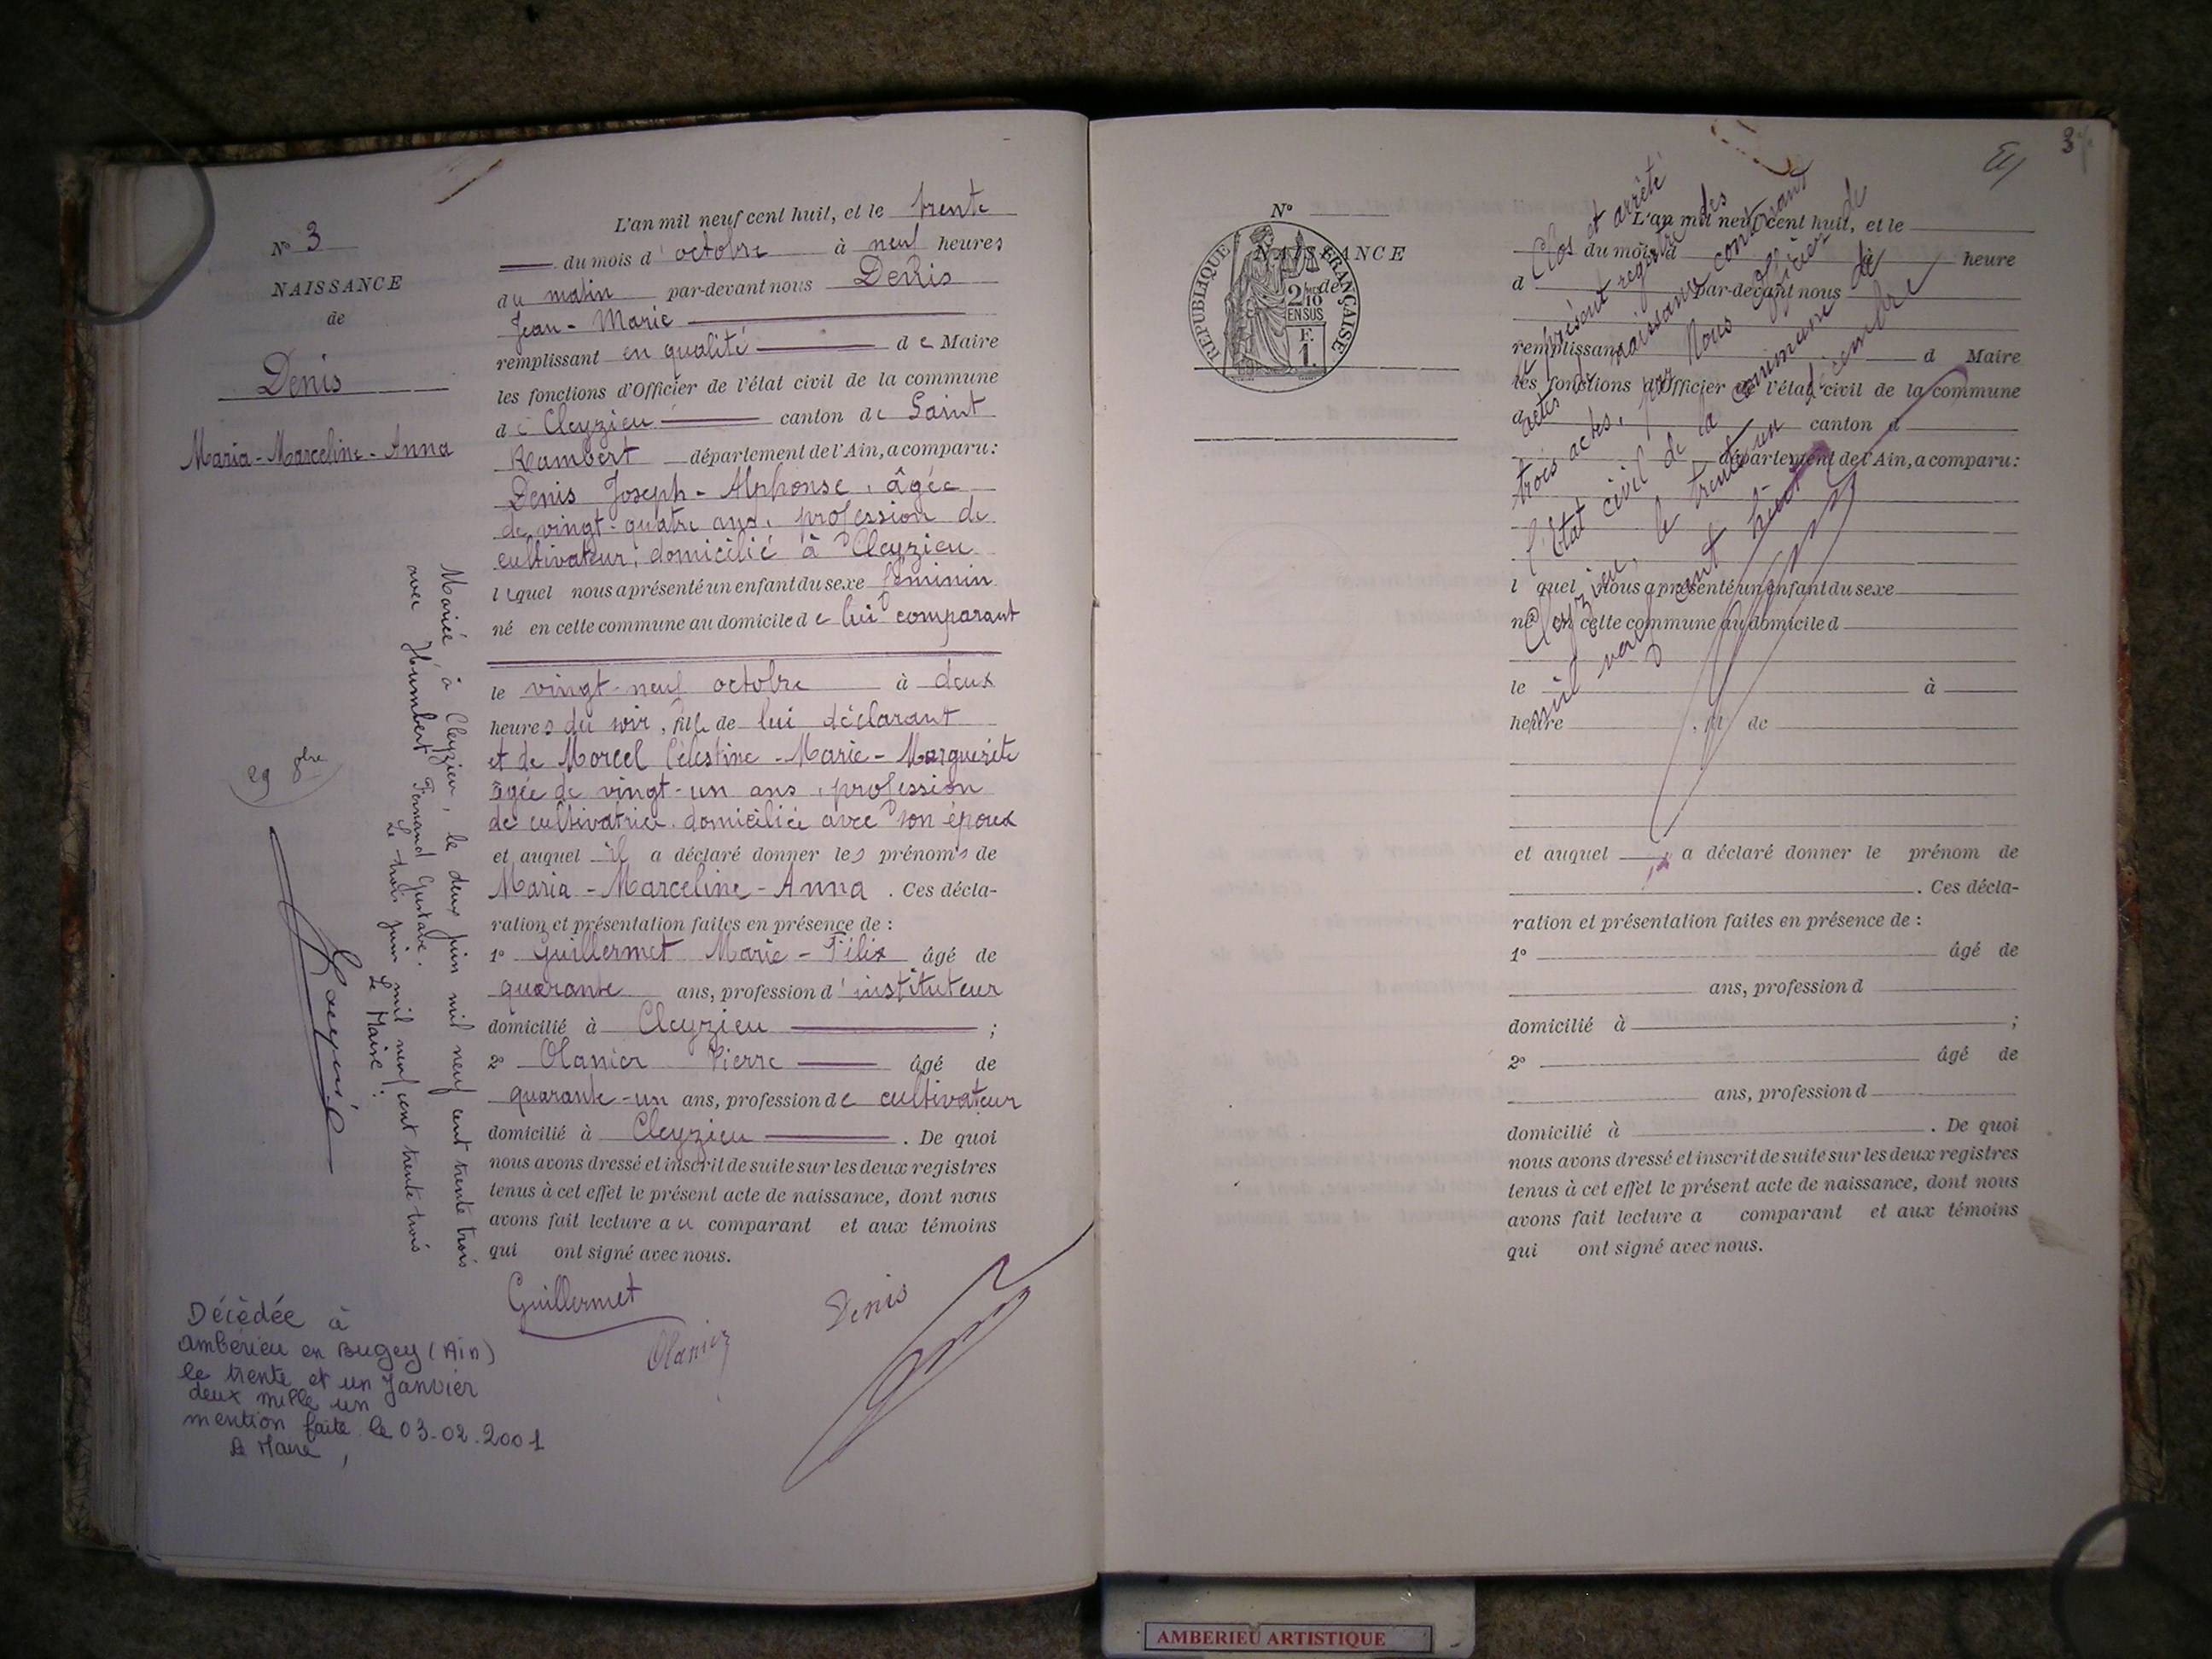 N° 3
NAISSANCE
de
Denis
Maria-Marceline-Anna
L'an mil neuf cent huit, et le trente
du mois d'octobre à neuf heures
du matin par-devant nous Denis
Jean-Marie
remplissant en qualité de Maire
les fonctions d'Officier de l'état civil de la commune
de Cleyzieu canton de Saint
Rambert département de l'Ain, a comparu:
Denis Joseph-Alphonse, âgée
de vingt-quatre ans, profession de
cultivateur, domicilié à Cleyzieu
lequel nous a présenté un enfant du sexe féminin
né en cette commune au domicile de lui comparant
le vingt-neuf octobre à deux
heures du soir, fille de lui déclarant
et de Morcel Célestine-Marie-Marguerite
âgée de vingt-un ans, profession
de cultivatrice domiciliée avec son époux
et auquel il a déclaré donner les prénoms de
Maria-Marceline-Anna. Ces décla-
ration et présentation faites en présence de :
1° Guillermet Marie-Félix âgé de
quarante ans, profession d'instituteur
domicilié à Cleyzieu ;
2° Olanier Pierre âgé de
quarante-un ans, profession de cultivateur
domicilié à Cleyzieu. De quoi
nous avons dressé et inscrit de suite sur les deux registres
tenus à cet effet le présent acte de naissance, dont nous
avons fait lecture au comparant et aux témoins
qui ont signé avec nous.
Guillermet
Olanier
Denis
Mariée à Cleyzieu, le deux juin mil neuf cent trente trois
avec Humbert Fernand Gustave.
Le trois juin mil neuf cent trente trois
Le Maire :
29 8bre
Décédée à
Ambérieu en Bugey (Ain)
le trente et un Janvier
deux mille un
mention faite le 03-02-2001
Le Maire,
3
N°
NAISSANCE
de
RÉPUBLIQUE FRANÇAISE
2/10
EN SUS
F.
1.
L'an mil neuf cent huit, et le
du mois d à heure
d par-devant nous
remplissant d Maire
les fonctions d'Officier de l'état civil de la commune
d canton d
département de l'Ain, a comparu:
l quel nous a présenté un enfant du sexe
né en cette commune au domicile d
le à
heure , fil de
et auquel a déclaré donner le prénom de
. Ces décla-
ration et présentation faites en présence de :
1° âgé de
ans, profession d
domicilié à ;
2° âgé de
ans, profession d
domicilié à . De quoi
nous avons dressé et inscrit de suite sur les deux registres
tenus à cet effet le présent acte de naissance, dont nous
avons fait lecture a comparant et aux témoins
qui ont signé avec nous.
Clos et arrêté
le présent registre des
actes de naissance contenant
trois actes, par Nous Officier de
l'état civil de la commune de
Cleyzieu, le trente-un décembre
mil neuf cent huit
AMBERIEU ARTISTIQUE